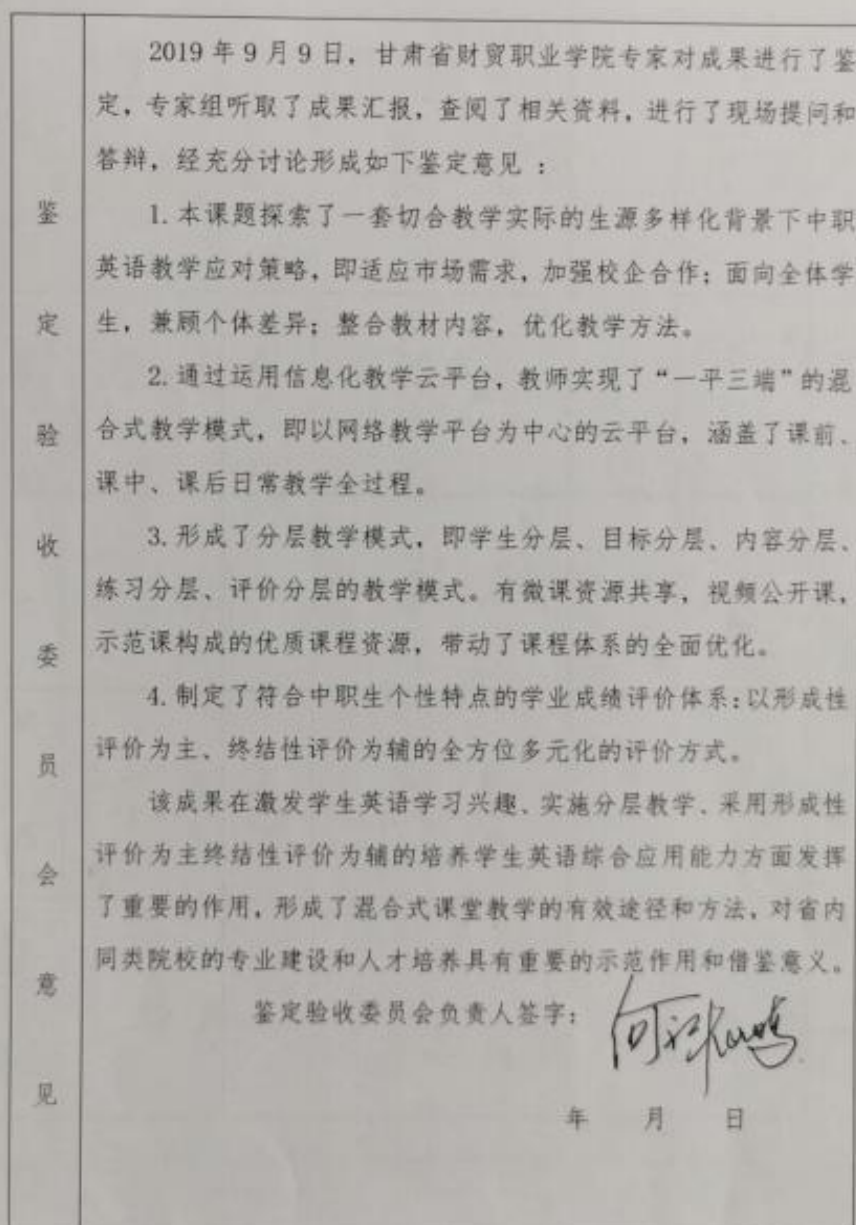 鉴定验收委员会意见
2019年9月9日，甘肃省财贸职业学院专家对成果进行了鉴
定，专家组听取了成果汇报，查阅了相关资料，进行了现场提问和
答辩，经充分讨论形成如下鉴定意见：
1.本课题探索了一套切合教学实际的生源多样化背景下中职
英语教学应对策略，即适应市场需求，加强校企合作；面向全体学
生，兼顾个体差异；整合教材内容，优化教学方法。
2.通过运用信息化教学云平台，教师实现了“一平三端”的混
合式教学模式，即以网络教学平台为中心的云平台，涵盖了课前、
课中、课后日常教学全过程。
3.形成了分层教学模式，即学生分层、目标分层、内容分层、
练习分层、评价分层的教学模式。有微课资源共享，视频公开课，
示范课构成的优质课程资源，带动了课程体系的全面优化。
4.制定了符合中职生个性特点的学业成绩评价体系：以形成性
评价为主、终结性评价为辅的全方位多元化的评价方式。
该成果在激发学生英语学习兴趣、实施分层教学、采用形成性
评价为主终结性评价为辅的培养学生英语综合应用能力方面发挥
了重要的作用，形成了混合式课堂教学的有效途径和方法，对省内
同类院校的专业建设和人才培养具有重要的示范作用和借鉴意义。
鉴定验收委员会负责人签字：
年 月 日